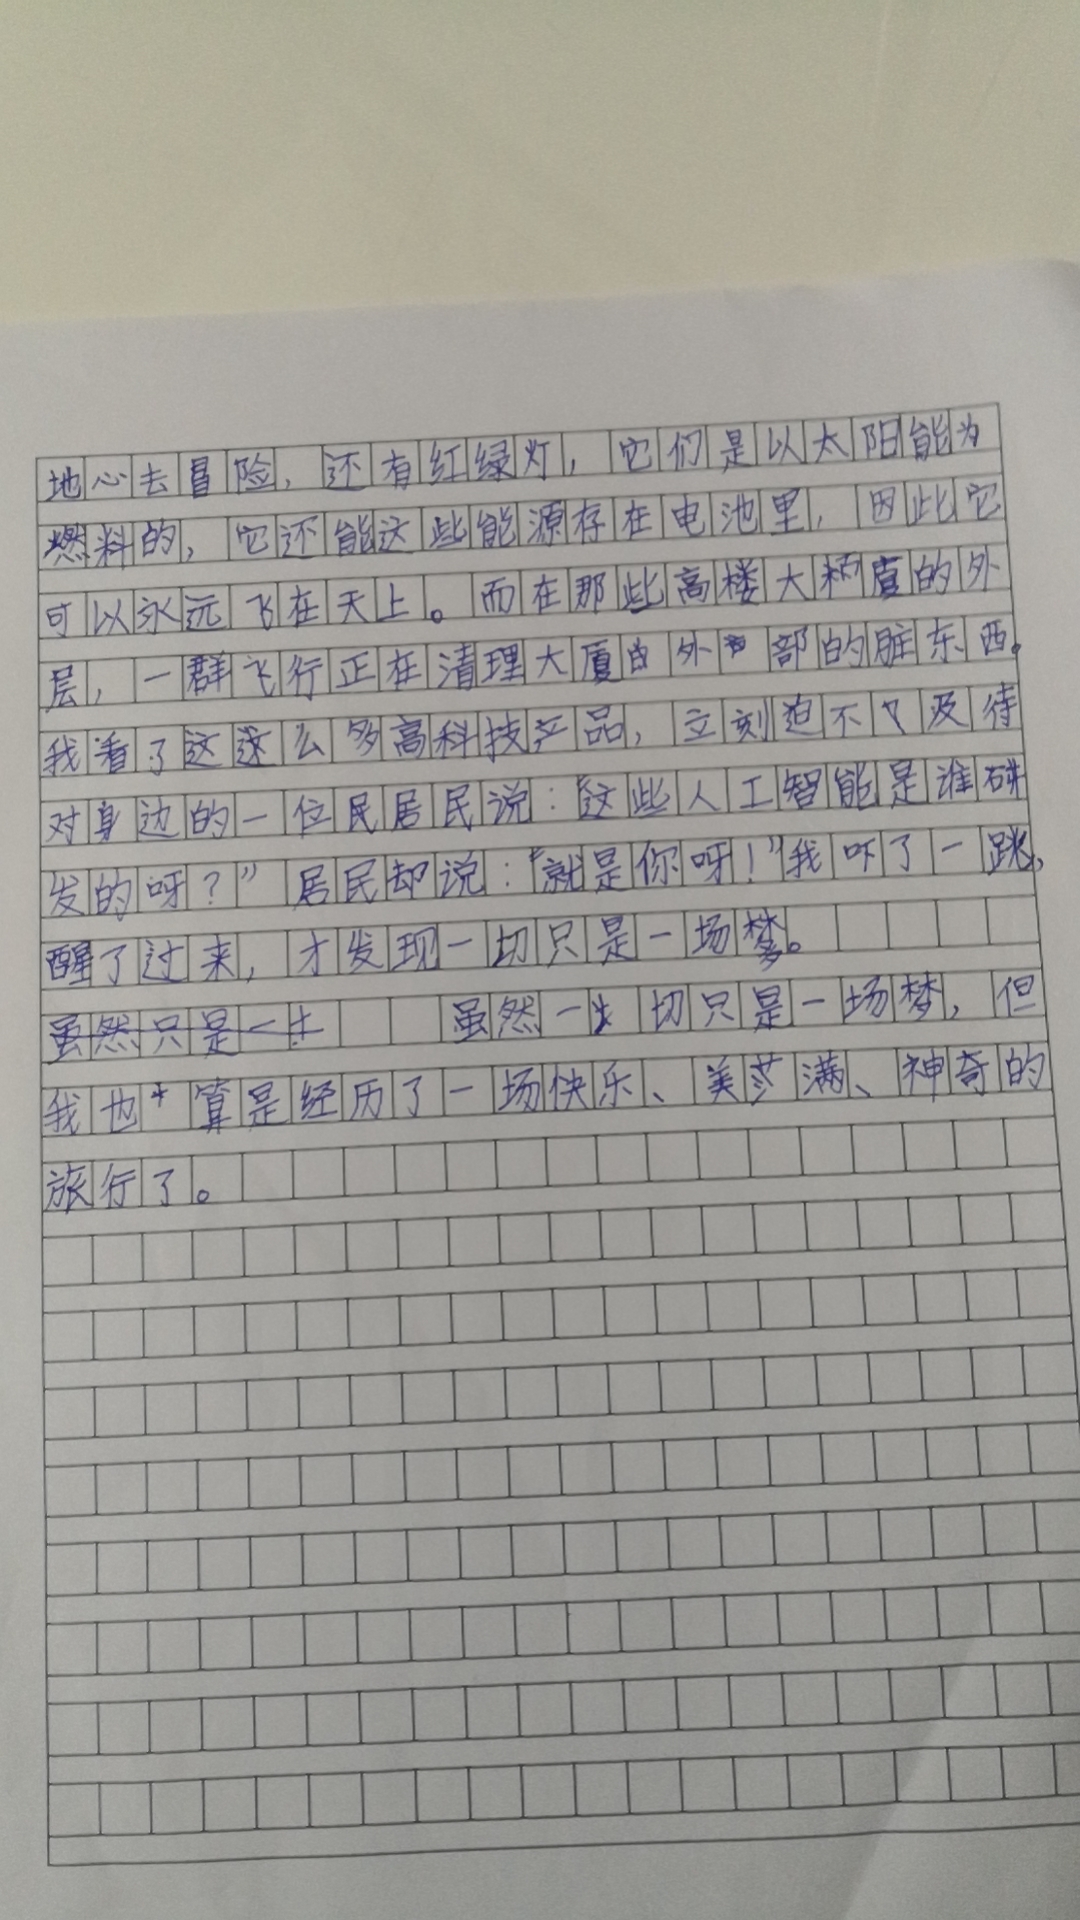 地心去冒险，还有红绿灯，它们是以太阳能为
燃料的，它还能这些能源存在电池里，因此它
可以永远飞在天上。而在那些高楼大厦的外
层，一群飞行正在清理大厦的外部的脏东西。
我看了这这么多高科技产品，立刻迫不及待
对身边的一位民居民说：“这些人工智能是谁研
发的呀？”居民却说：“就是你呀！”我吓了一跳，
醒了过来，才发现一切只是一场梦。
虽然只是一 虽然一切只是一场梦，但
我也算是经历了一场快乐、美满、神奇的
旅行了。